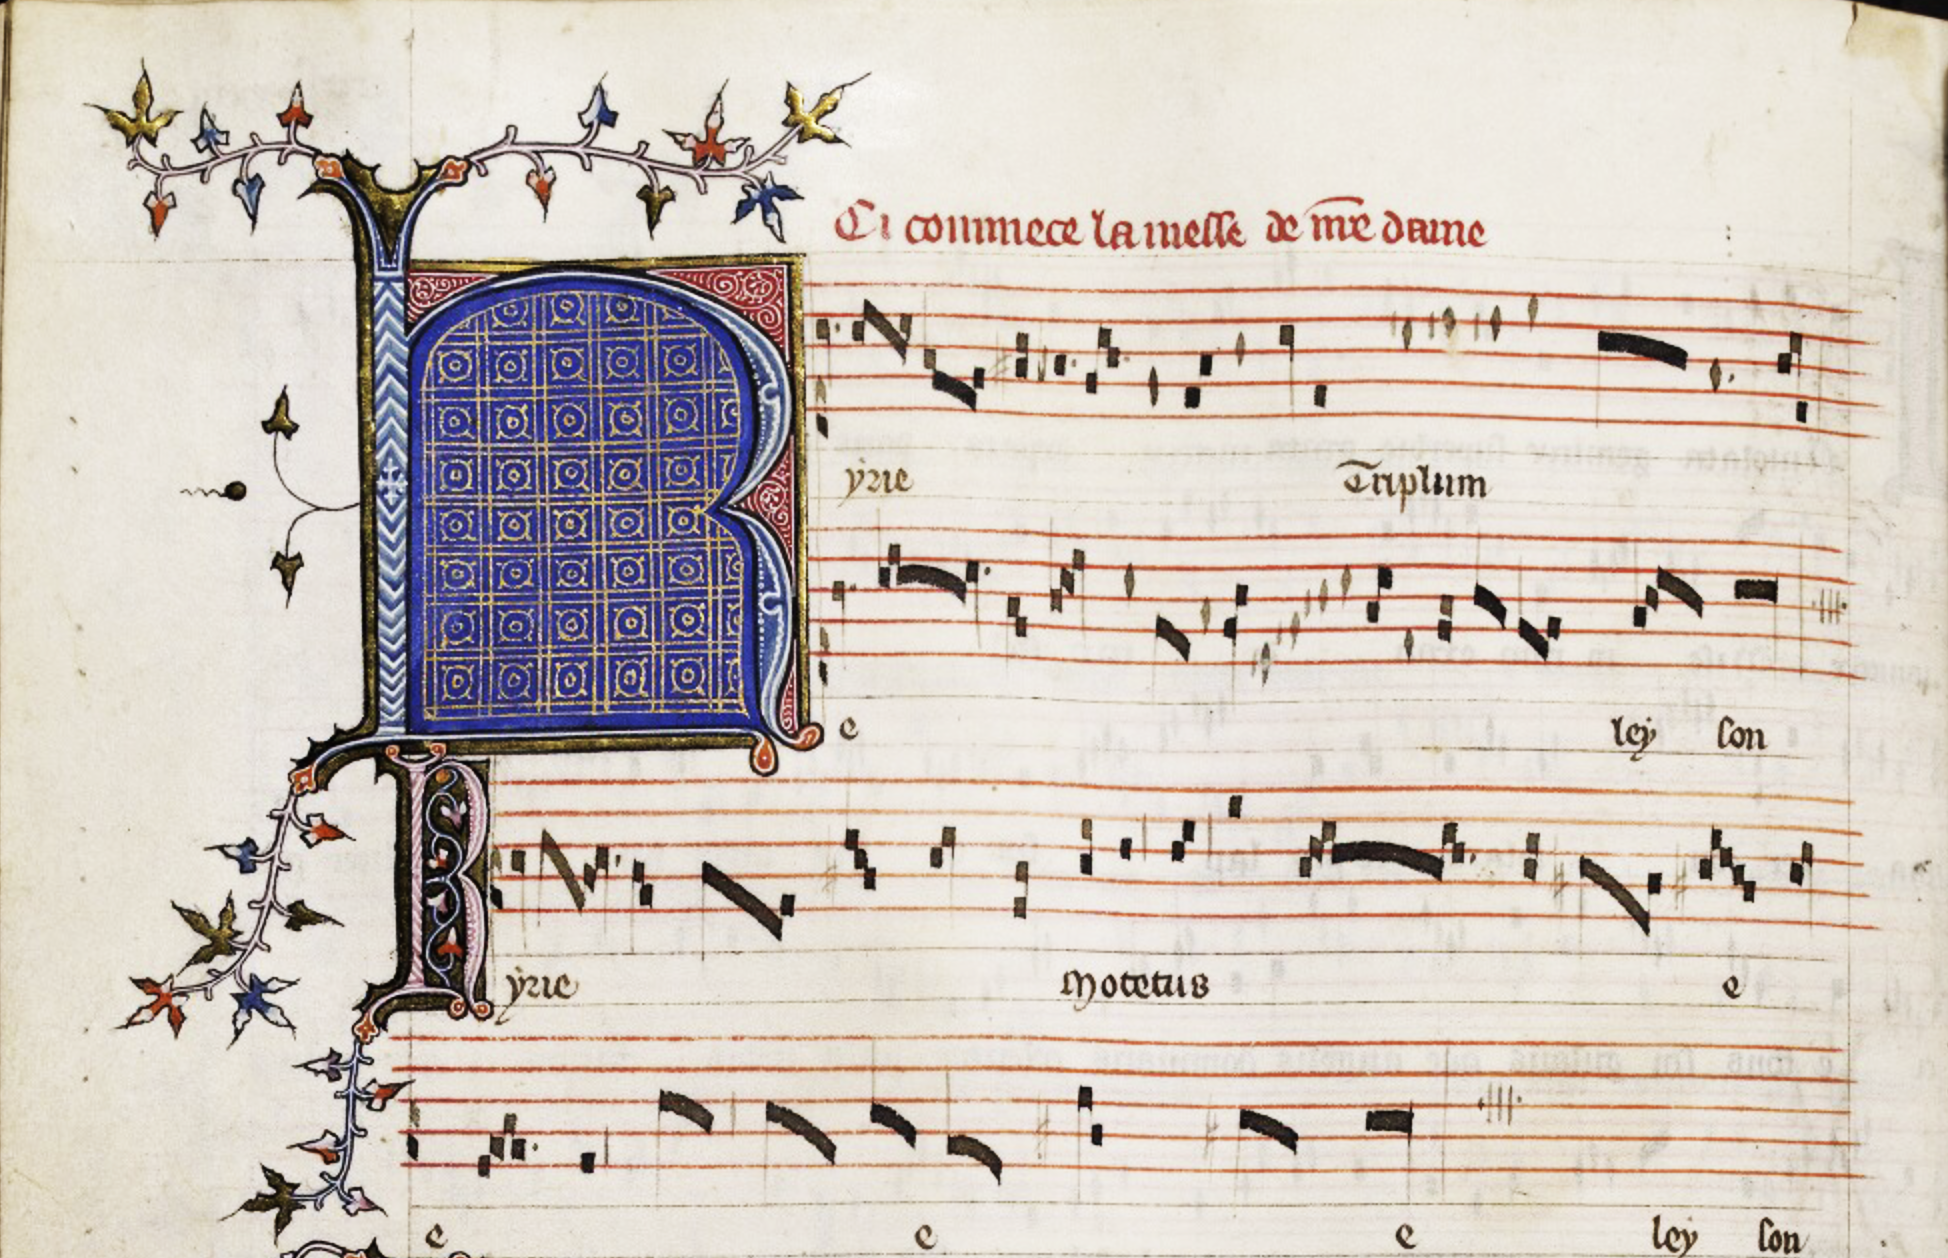 Ci commece la messe de mre dame
Kyrie Triplum
e ley son
Kyrie Motetus e
e e e ley son